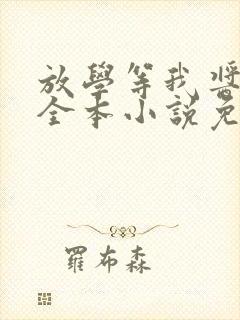 放學等我 醬
全本小說免
羅布森